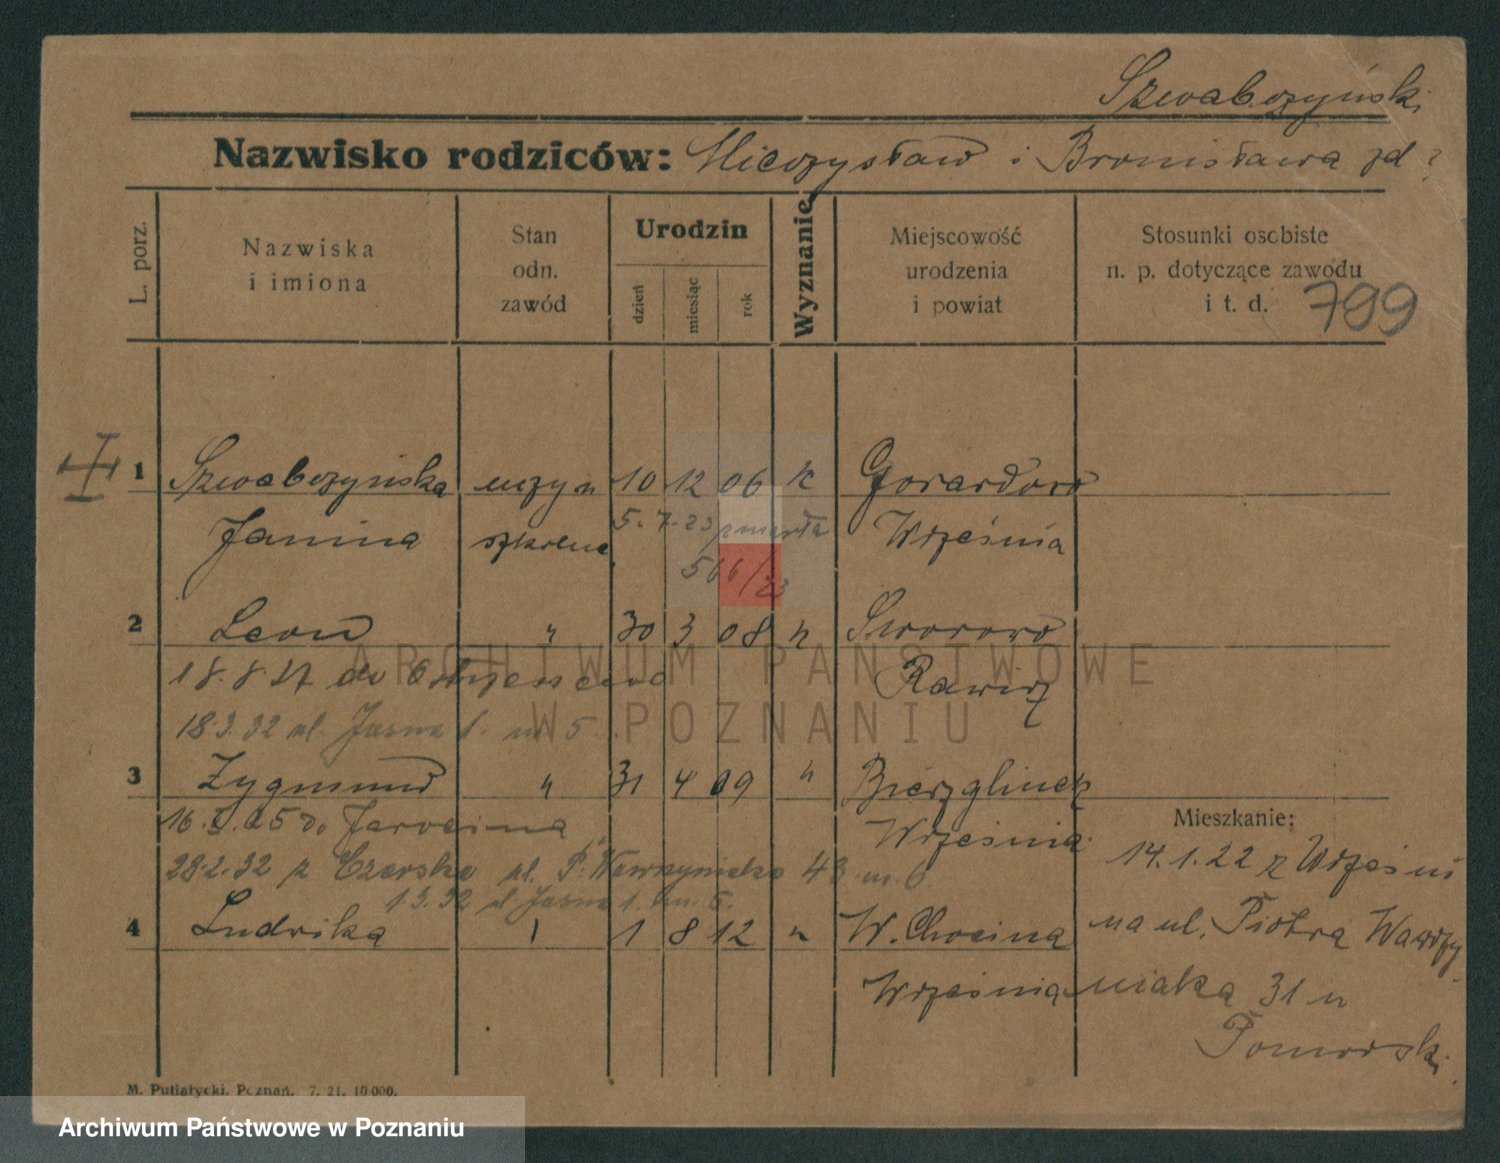 Szwabczyński
Nazwisko rodziców: Mieczysław i Bronisława zd ?
L. porz.
Nazwiska
i imiona
Stan
odn.
zawód
Urodzin
dzień
miesiąc
rok
Wyznanie
Miejscowość
urodzenia
i powiat
Stosunki osobiste
n. p. dotyczące zawodu
i t. d.
799
1 Szwabczyńska uczyn 10 12 06 k Gorardowo
Janina szkolne 5.7.23 zmarła Września
566/23
2 Leon " 30 3 08 "
18.8.27 do Rawicz
18.3.32 ul. Jasna 1. m 5.
3 Zygmund " 31 4 09 " Bierzglinek
16. 25 do Jarocina Września
Mieszkanie:
28.2.32 z Czerska ul. P. Wawrzyniaka 43 m. 6
14.1.22 z Wrześni
1.3.32 ul. Jasna 1. m. 5.
4 Ludwika 1 8 12 " W. Chocina
na ul. Piotra Wawrzy
Września
niaka 31 u
Pomorski
M. Putiatycki. Poznań. 7. 21. 10 000.
ARCHIWUM PAŃSTWOWE
W POZNANIU
Archiwum Państwowe w Poznaniu